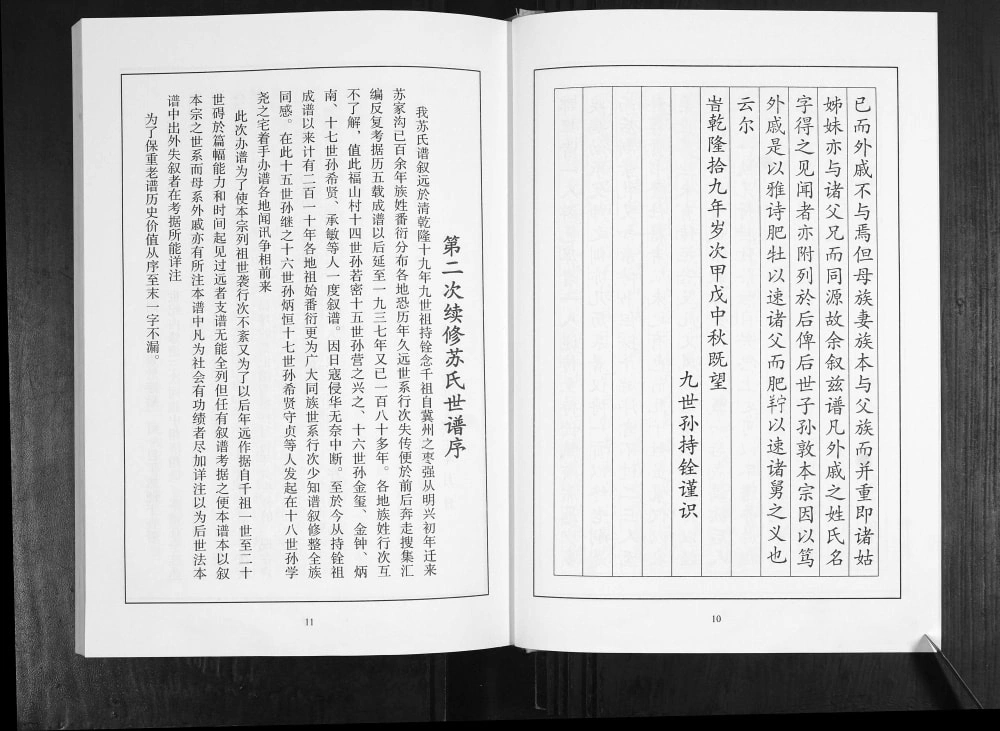 已而外戚不与焉但母族妻族本与父族而并重即诸姑
姊妹亦与诸父兄而同源故余叙兹谱凡外戚之姓氏名
字得之见闻者亦附列於后俾后世子孙敦本宗因以笃
外戚是以雅诗肥牡以速诸父而肥羜以速诸舅之义也
云尔
旹乾隆拾九年岁次甲戊中秋既望
九世孙持铨谨识
10
第二次续修苏氏世谱序
我苏氏谱叙远於清乾隆十九年九世祖持铨念千祖自冀州之枣强从明兴初年迁来
苏家沟已百余年族姓番衍分布各地恐历年久远世系行次失传便於前后奔走搜集汇
编反复考据历五载成谱以后延至一九三七年又已一百八十多年。各地族姓行次互
不了解，值此福山村十四世孙若密十五世孙营之兴之、十六世孙金玺、金钟、炳
南、十七世孙希贤、承敏等人一度叙谱。因日寇侵华无奈中断。至於今从持铨祖
成谱以来计有二百一十年各地祖始番衍更为广大同族世系行次少知谱叙修整全族
同感。在此十五世孙继之十六世孙炳恒十七世孙希贤守贞等人发起在十八世孙学
尧之宅着手办谱各地闻讯争相前来
此次办谱为了使本宗列祖世袭行次不紊又为了以后年远作据自千祖一世至二十
世碍於篇幅能力和时间起见过远者支谱无能全列但任有叙谱考据之便本谱本以叙
本宗之世系而母系外戚亦有所注本谱中凡为社会有功绩者尽加详注以为后世法本
谱中出外失叙者在考据所能详注
为了保重老谱历史价值从序至末一字不漏。
11